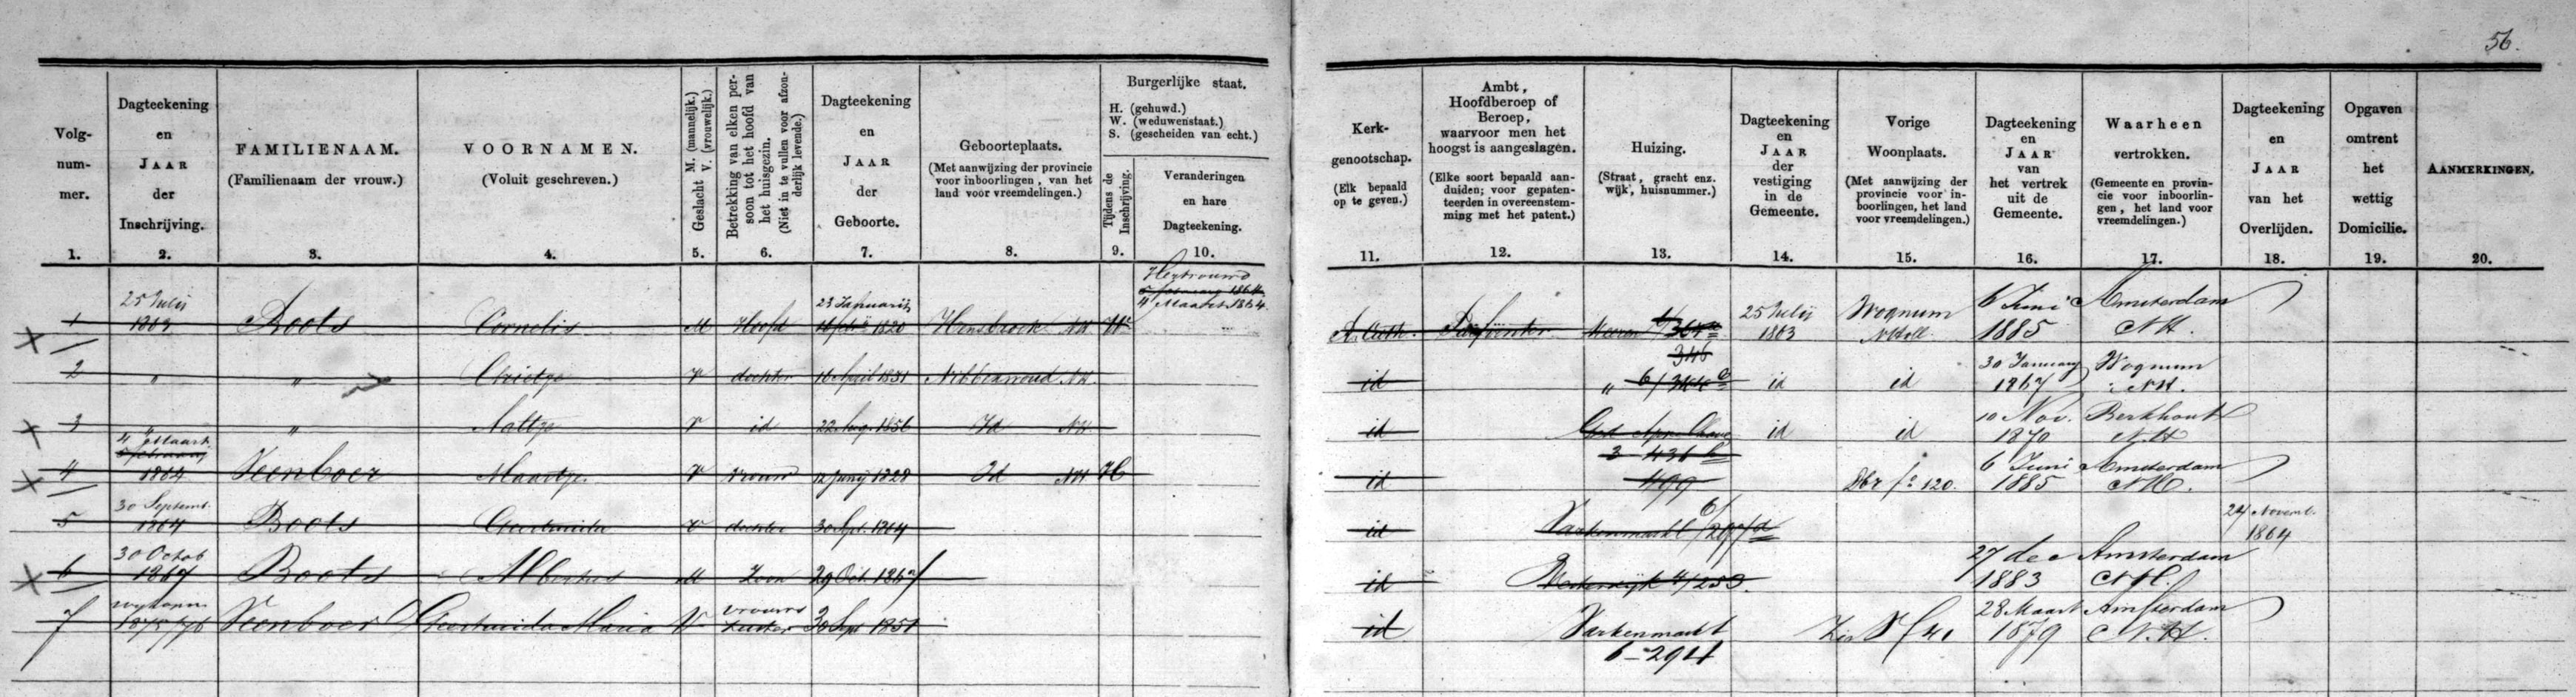 56.
Volg-
num-
mer.
1.
Dagteekening
en
JAAR
der
Inschrijving.
2.
FAMILIENAAM.
(Familienaam der vrouw.)
3.
VOORNAMEN.
(Voluit geschreven.)
4.
Geslacht M. (mannelijk.)
V. (vrouwelijk.)
5.
Betrekking van elken per-
soon tot het hoofd van
het huisgezin.
(Niet in te vullen voor afzon-
derlijk levende.)
6.
Dagteekening
en
JAAR
der
Geboorte.
7.
Geboorteplaats.
(Met aanwijzing der provincie
voor inboorlingen, van het
land voor vreemdelingen.)
8.
Burgerlijke staat.
H. (gehuwd.)
W. (weduwenstaat.)
S. (gescheiden van echt.)
Tijdens de
Inschrijving.
9.
Veranderingen
en hare
Dagteekening.
10.
Kerk-
genootschap.
(Elk bepaald
op te geven.)
11.
Ambt,
Hoofdberoep of
Beroep,
waarvoor men het
hoogst is aangeslagen.
(Elke soort bepaald aan-
duiden; voor gepaten-
teerden in overeenstem-
ming met het patent.)
12.
Huizing.
(Straat, gracht enz.
wijk, huisnummer.)
13.
Dagteekening
en
JAAR
der
vestiging
in de
Gemeente.
14.
Vorige
Woonplaats.
(Met aanwijzing der
provincie voor in-
boorlingen, het land
voor vreemdelingen.)
15.
Dagteekening
en
JAAR
van
het vertrek
uit de
Gemeente.
16.
Waarheen
vertrokken.
(Gemeente en provin-
cie voor inboorlin-
gen, het land voor
vreemdelingen.)
17.
Dagteekening
en
JAAR
van het
Overlijden.
18.
Opgaven
omtrent
het
wettig
Domicilie.
19.
AANMERKINGEN.
20.
Hertrouwd
4 Maart 1864
25 Julij 23 Januarij
1 1863 Boots Cornelis M Hoofd 1820 Hensbroek NH W
25 Julij Wognum 6 Juni Amsterdam
1863 NHoll. 1885 NH.
2 " " V dochter 16 April 1851 Nibbixwoud NH.
346
id " 6/344 id id
30 January Wognum
1867 NH.
3 " " Aaltje V id 22 Aug. 1856 Id NH
id id id
10 Nov. Berkhout
1870 N.H
4 Maart
4 1864 Veenboer Maartje V Vrouw 12 Junij 1828 Id NH H
3 436 b
id 499 f° 120.
6 Juni Amsterdam
1885 NH.
30 Septemb.
5 1864 Boots Geertruida V dochter 30 Spt. 1864
id Varkenmarkt 6/
24 Novemb.
1864
30 Octob
6 1867 Boots Albertus M Zoon 29 Oct. 1867
id 4/253.
27 dec Amsterdam
1883 NH.
7 Veenboer Geertruida Maria V vrouws zuster 30 Sept 1851
id Varkenmarkt
6-294
28 Maart Amsterdam
1879 N.H.